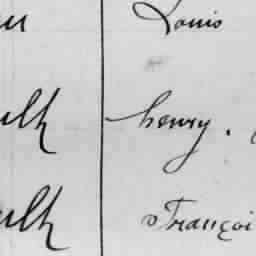 Louis
ulh henry.
ulh Françoi